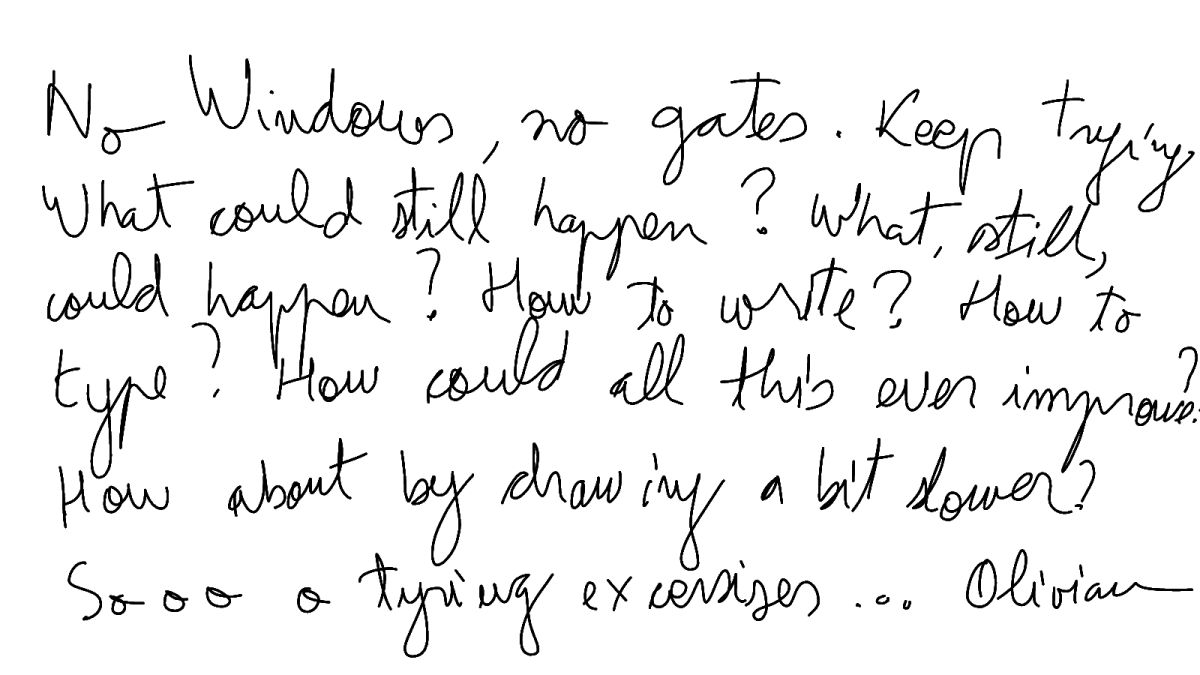 No Windows, no gates. Keep trying.
What could still happen? What, still,
could happen? How to write? How to
type? How could all this ever improve?
How about by drawing a bit slower?
Sooo o tyring excersizes ... Olivian